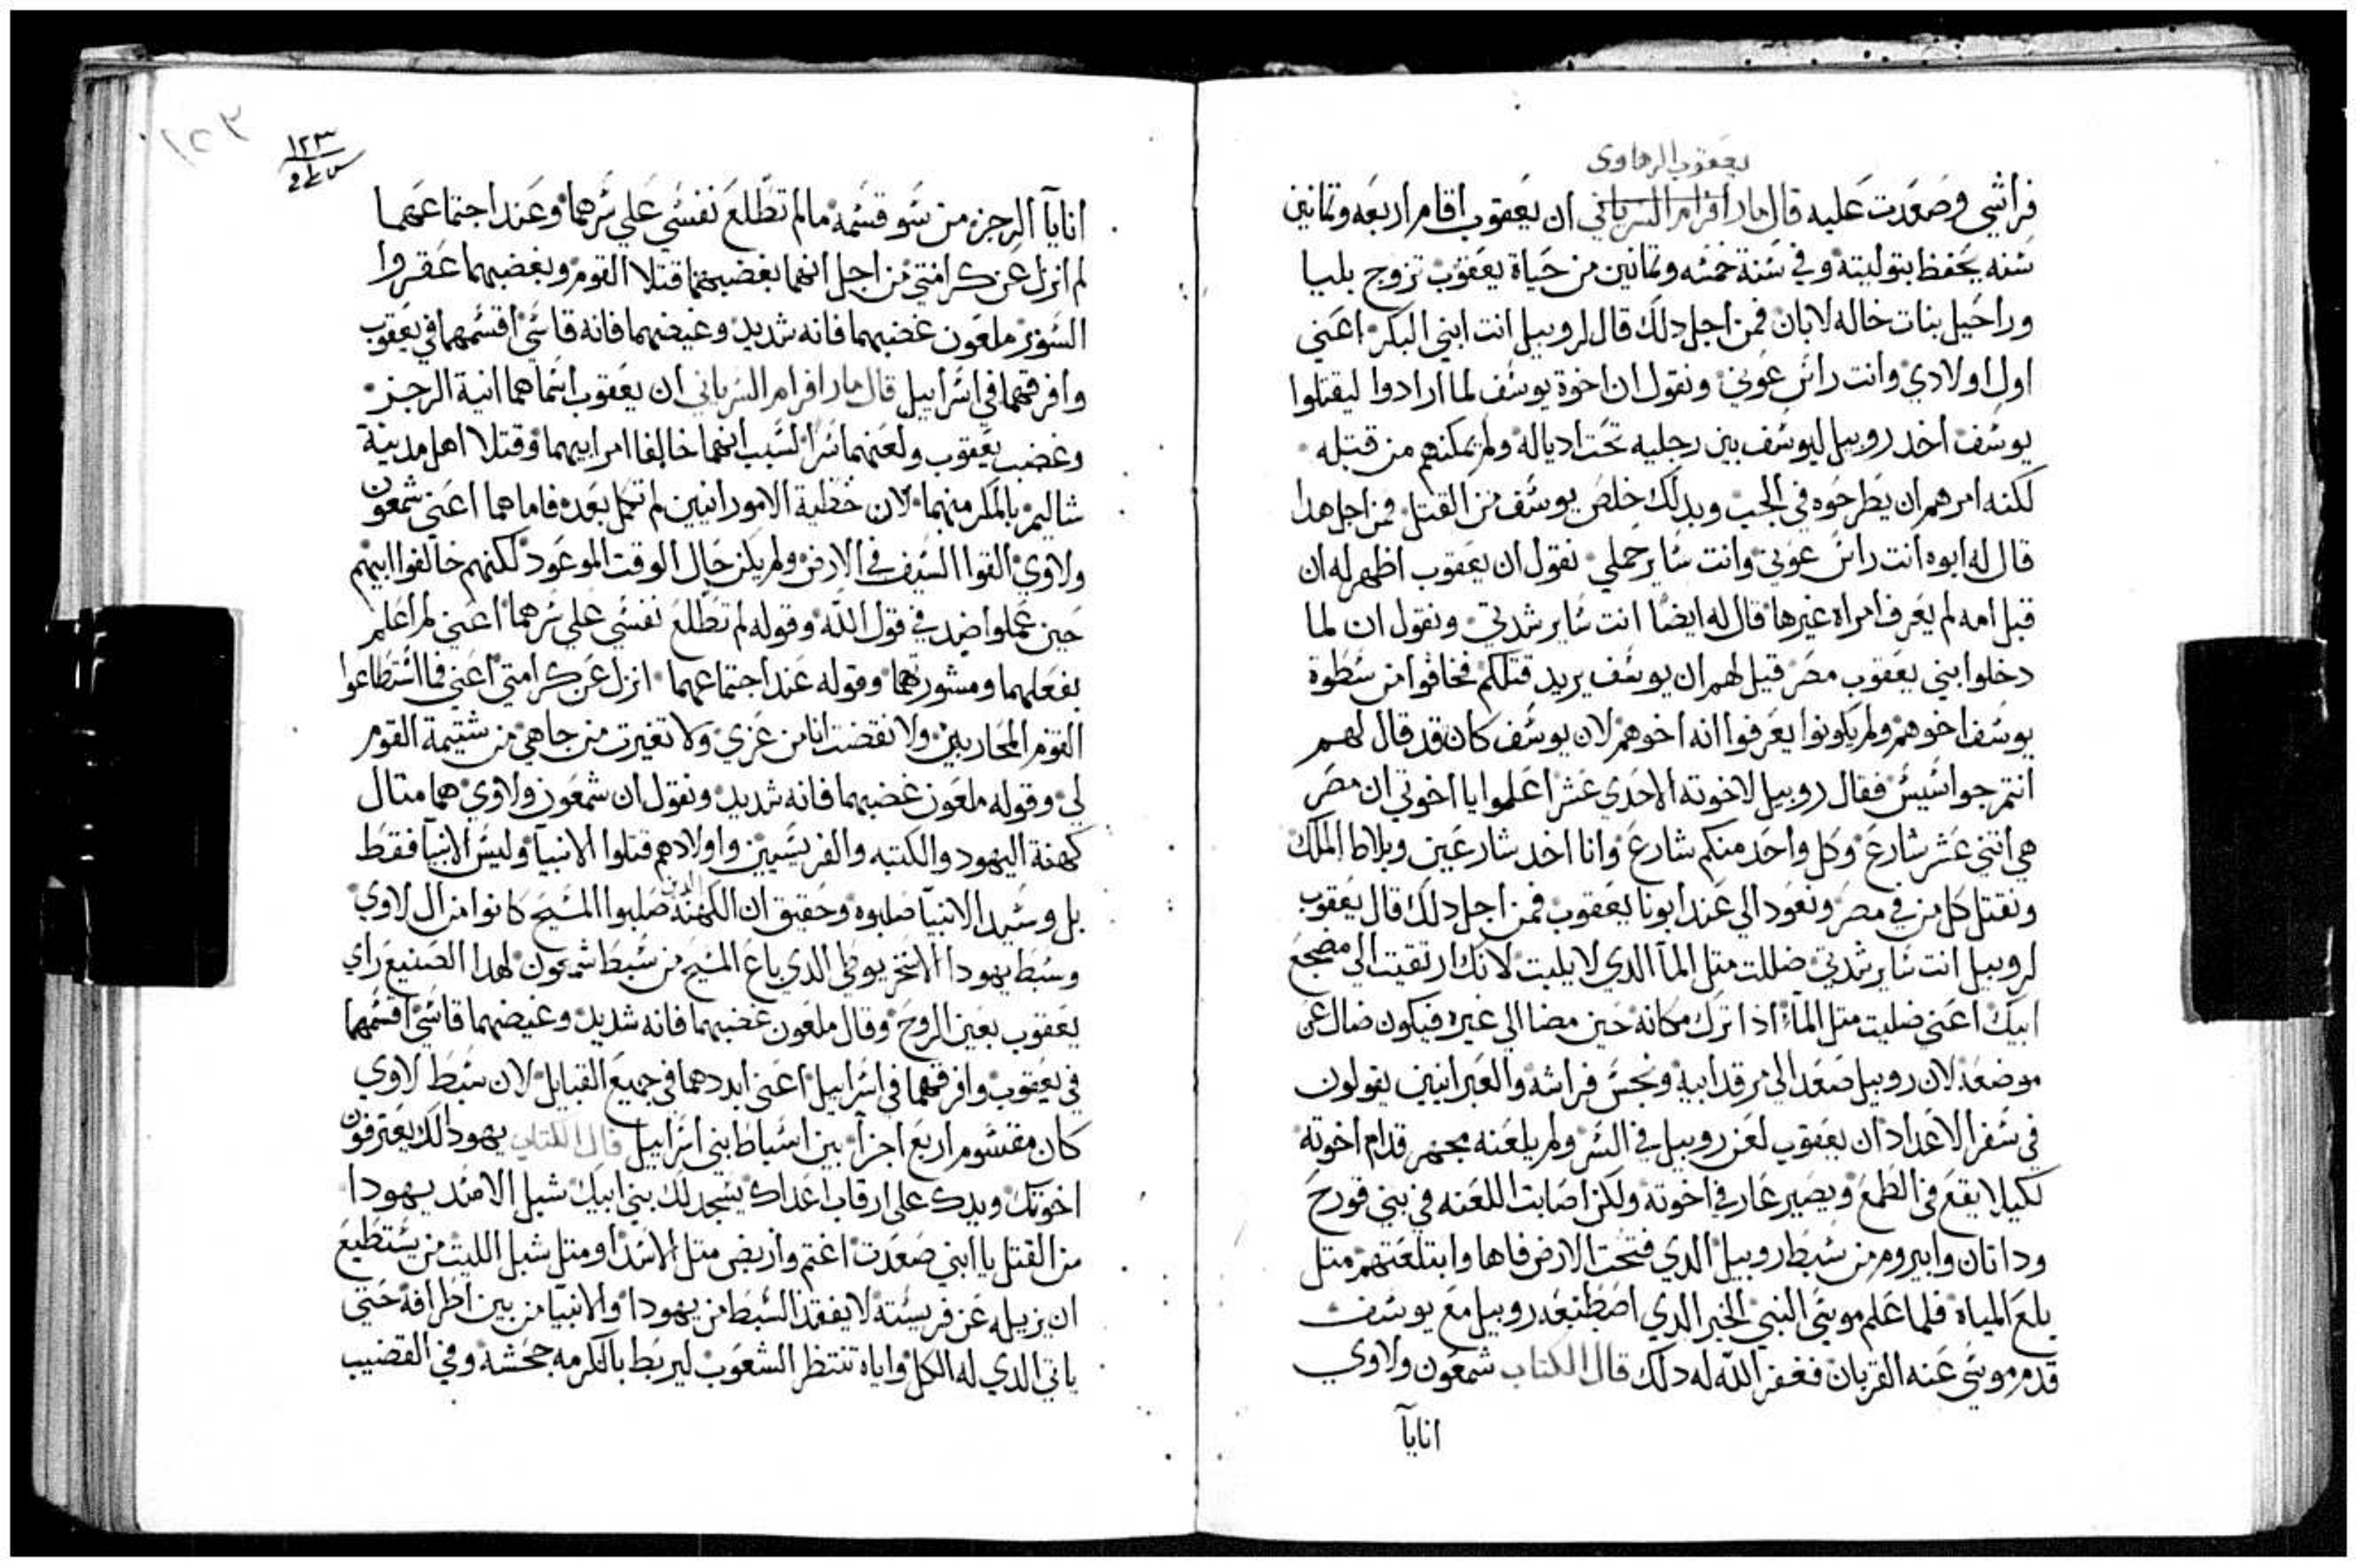 يعقوب الرهاوي
فراشي وصعدت عليه قال مار افرام السرياني ان يعقوب اقام اربعه وتمانين
سنه يحفظ بتوليته وفي سنة خمسه وتمانين من حياة يعقوب تزوج بليا
وراحيل بنات خاله لابان فمن اجل دلك قال لروبيل انت ابني البكر اعني
اول اولادي وانت راس عوني ونقول ان اخوة يوسف لما ارادوا ليقتلوا
يوسف اخد روبيل ليوسف بين رجليه تحت ادياله ولم يمكنهم من قتله
لكنه امرهم ان يطرحوه في الجب وبدلك خلص يوسف من القتل فمن اجل هدا
قال له ابوه انت راس عوني وانت ساير حملي نقول ان يعقوب اظهر له ان
قبل امه لم يعرف امراه غيرها قال له ايضا انت ساير شدتي ونقول ان لما
دخلوا بني يعقوب مصر قيل لهم ان يوسف يريد قتلكم فخافوا من سطوة
يوسف اخوهم ولم يكونوا يعرفوا انه اخوهم لان يوسف كان قد قال لهم
انتم جواسيس فقال روبيل لاخوته الاحدي عشر اعلموا يا اخوتي ان مصر
هي اتني عشر شارع وكل واحد منكم شارع وانا اخد شارعين وبلاط الملك
ونقتل كل من في مصر ونعود الي عند ابونا يعقوب فمن اجل دلك قال يعقوب
لروبيل انت ساير شدتي ضللت متل المآ الدي لا يلبت لانك ارتقيت الي مضجع
ابيك اعني ضليت متل المآ اذا ترك مكانه حين مضا الي غيره فيكون ضال عن
موضعه لان روبيل صعد الي مرقد ابيه ونجس فراشه والعبرانيين يقولون
في سفر الاعداد ان يعقوب لعن روبيل في السر ولم يلعنه بجهر قدام اخوته
لكيلا يقع في الطمع ويصير عار في اخوته ولكن اصابت اللعنه في بني قورح
وداتان وابيروم من سبط روبيل الدي فتحت الارض فاها وابتلعتهم متل
بلع المياه فلما علم موسي النبي الخير الدي اصطنعه روبيل مع يوسف
قدم موسي عنه القربان فغفر الله له دلك قال الكتاب شمعون ولاوي
انايآ
١٢٣
١٢٣
انايآ الرجز من سو قسمه مالم تطلع نفسي علي سرهما وعند اجتماعهما
لم انزل عن كرامتي من اجل انهما بغضبهما قتلا القوم وبغضبهما عقروا
السور ملعون غضبهما فانه شديد وغيضهما فانه قاسي اقسمهما في يعقوب
وافرقهما في اسراييل قال مار افرام السرياني ان يعقوب اسماهما انية الرجز
وغضب يعقوب ولعنهما سرا لسبب انهما خالفا امر ابيهما وقتلا اهل مدينة
شاليم بالمكر منهما لان خطية الامورانيين لم تكمل بعده فاما هما اعني شمعون
ولاوي القوا السيف في الارض ولم يكن حال الوقت الموعود لكنهم خالفوا ابيهم
حين عملوا ضد في قول الله وقوله لم تطلع نفسي علي سرهما اعني لم اعلم
بفعلهما ومشورتهما وقوله عند اجتماعهما انزل عن كرامتي اعني فما استطاعوا
القوم المحاربين ولا نقضت انا من عزي ولا تغيرت من جاهي من شتيمة القوم
لي وقوله ملعون غضبهما فانه شديد ونقول ان شمعون ولاوي هما متال
كهنة اليهود والكتبه والفريسيين واولادهم قتلوا الانبيآ وليس الانبيآ فقط
بل وسيد الانبيآ صلبوه وحقيق ان الكهنه الدين صلبوا المسيح كانوا من ال لاوي
وسبط يهودا الاسخريوطي الدي باع المسيح من سبط شمعون لهدا الصنيع راي
يعقوب بعين الروح وقال ملعون غضبهما فانه شديد وغيضهما قاسي اقسمهما
في يعقوب وافرقهما في اسراييل اعني ابددهما في جميع القبايل لان سبط لاوي
كان مقسوم اربع اجزآ بين اسباط بني اسراييل قال الكتاب يهودا لك يعترفون
اخوتك ويدك علي ارقاب اعداك يسجد لك بني ابيك شبل الاسد يهودا
من القتل يا ابني صعدت اغتم واربض متل الاسد ومتل شبل الليت من يستطيع
ان يزيله عن فريسته لا يفقد السبط من يهودا والانبيا من بين اطرافه حتي
ياتي الدي له الكل واياه تنتظر الشعوب ليربط بالكرمه جحشه وفي القضيب